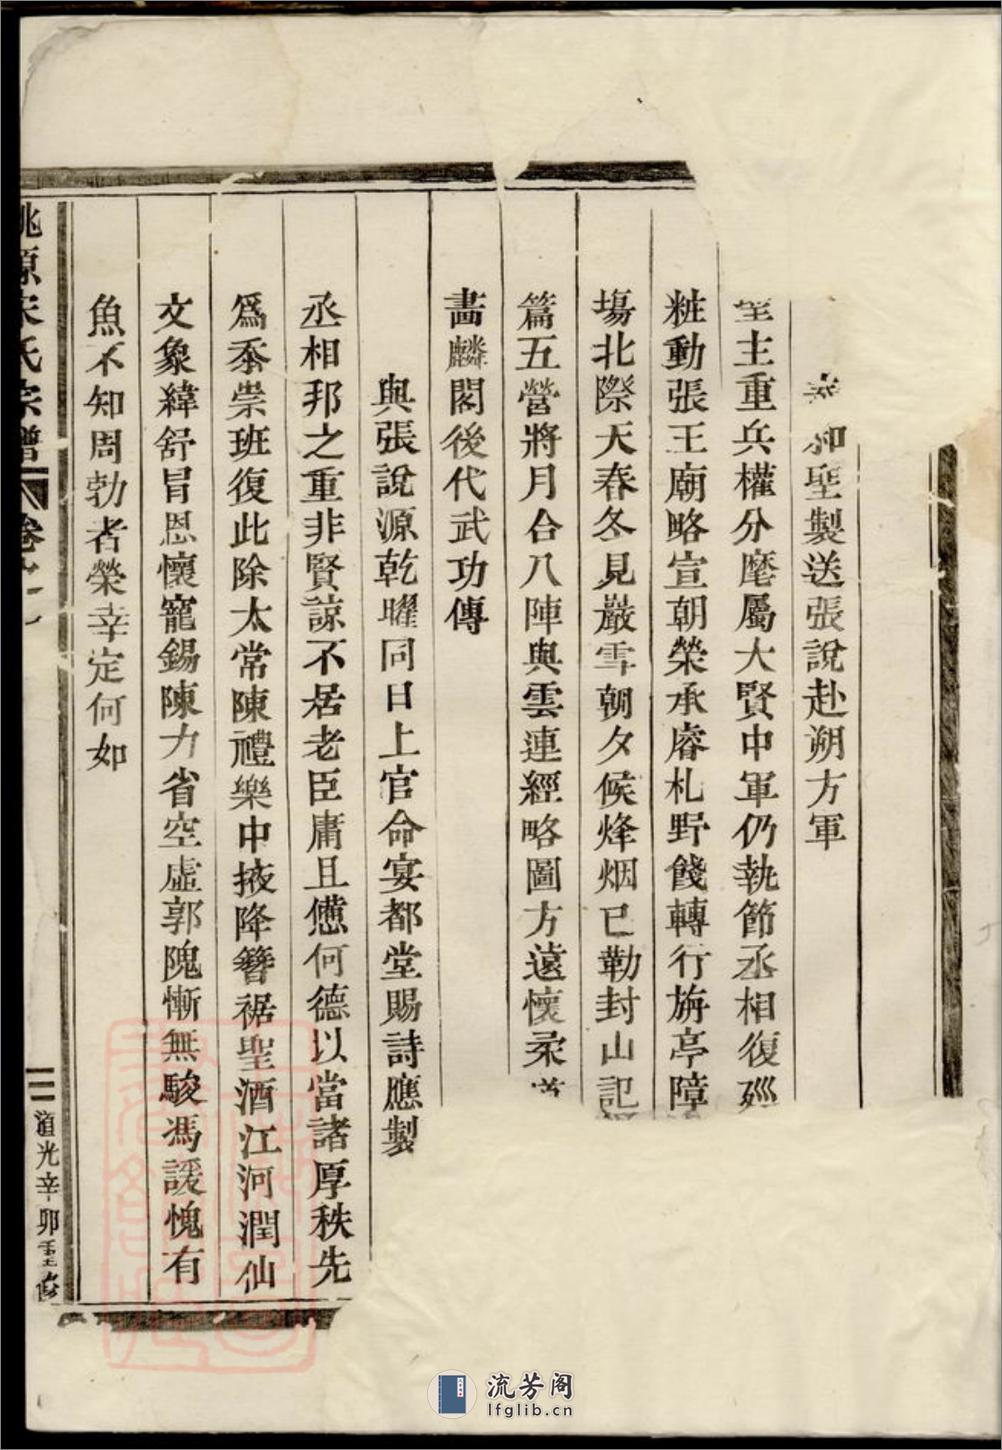 奉和聖製送張說赴朔方軍
聖主重兵權分麾屬大賢中軍仍執節丞相復
粧動張王廟略宣朝榮承睿札野餞轉行旃亭障
塲北際天春冬見巖雪朝夕候烽烟已勒封山記
篇五營將月合八陣與雲連經略圖方遠懷柔
畵麟閣後代武功傳
與張說源乾曜同日上官命宴都堂賜詩應製
丞相邦之重非賢諒不居老臣庸且憊何德以當諸厚秩先
爲忝崇班復此除太常陳禮樂中掖降簪裾聖酒江河潤仙
文象緯舒冒恩懷寵錫陳力省空虛郭隗慚無駿馮諼愧有
魚不知周勃者榮幸定何如
桃源宋氏宗譜
卷
二
道光辛卯重修
流芳阁
lfglib.cn